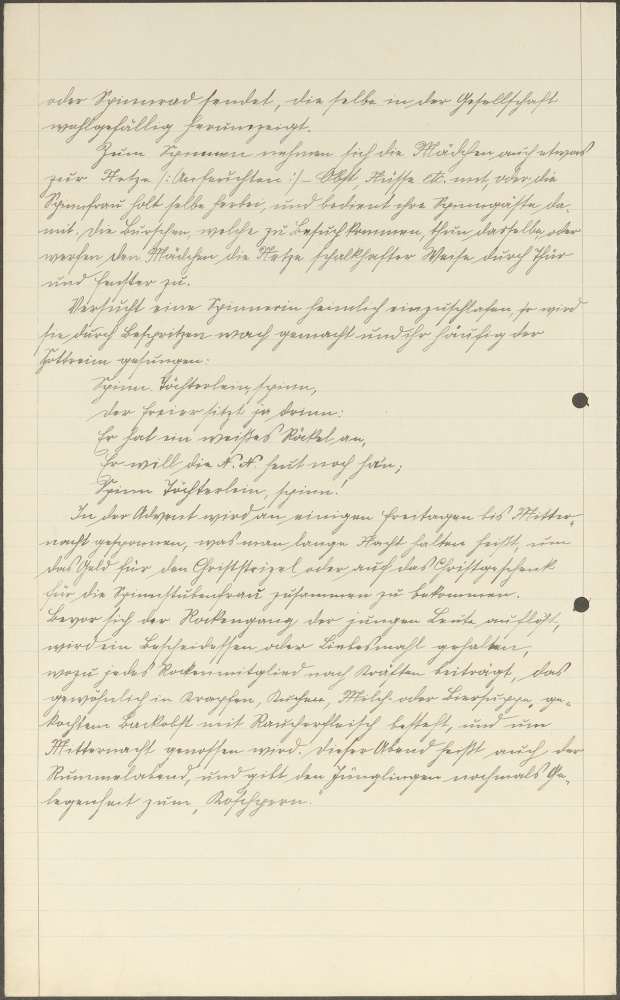 oder Spinnrad sendet, die selbe in der Gesellschaft
wohlgefällig herumzeigt.
Zum Spinnen nehmen sich die Mädchen auch etwas
zur Netze /: Anfeuchten :/ – Obst, Nüsse etc. mit, oder die
Spinnfrau holt selbe herbei, und bedient ihre Spinngäste da-
mit. Die Burschen, welche zu Besuch kommen, thun dasselbe, oder
werfen den Mädchen die Netze schalkhafter Weise durch Thür
und Fenster zu.
Versucht eine Spinnerin heimlich einzuschlafen, so wird
sie durch Bespritzen wach gemacht und ihr häufig der
Spottreim gesungen:
Spinn Töchterlein, spinn,
der Freier sitzt ja drinn:
Er hat ein weißes Röckel an,
Er will die N. N. heut noch ha'n;
Spinn Töchterlein, spinn!
In der Advent wird an einigen Freitagen bis Mitter-
nacht gesponnen, was man lange Nacht halten heißt, um
das Geld für den Christstrizel oder auch das Christgeschenk
für die Spinnstubenfrau zusammen zu bekommen.
Bevor sich der Rockengang der jungen Leute auflöst,
wird ein Bescheidessen oder Liebesmahl gehalten,
wozu jedes Rockenmitglied nach Kräften beiträgt, das
gewöhnlich in Krapfen, Kuchen, Milch- oder Biersuppe, ge-
kochtem Backobst mit Räucherfleisch besteht, und um
Mitternacht genossen wird. Dieser Abend heißt auch der
Rummelabend, und gibt den Jünglingen nochmals Ge-
legenheit zum